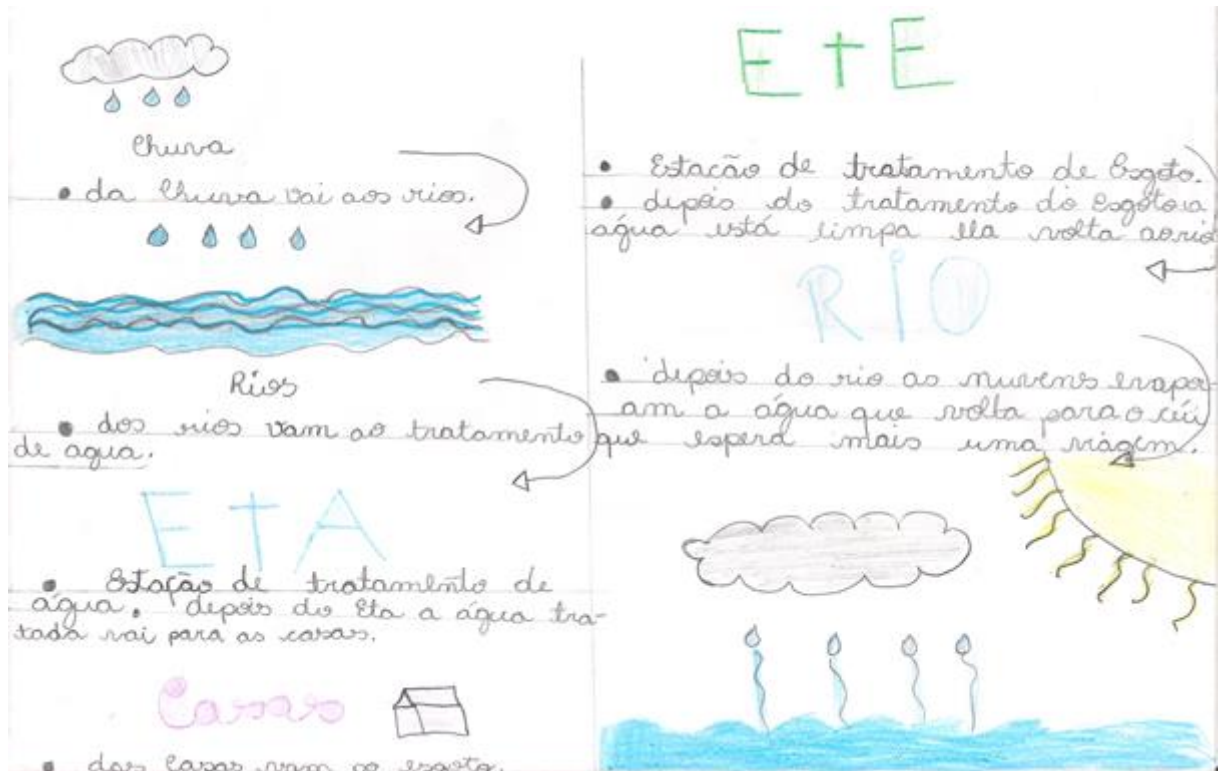 Chuva
• da Chuva vai aos rios.
Rios
• dos rios vam ao tratamento
de agua.
ETA
• Estação de tratamento de
água. depois do Eta a água tra-
tada vai para as casas.
Casas
• das casas vam ao esgoto.
ETE
• Estacão de tratamento de Esgoto.
• depois do tratamento do esgoto a
água está limpa ela volta ao rio
RIO
• depois do rio as nuvens evapo
am a água que volta para o céu
que espera mais uma viagem.